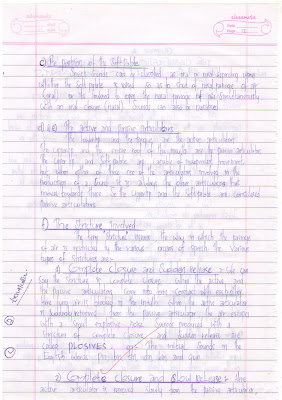 c) The position of the Soft Palate
Speech Sounds can be classified, as oral or nasal depending upon
whether the Soft palate is raised so as to shut of nasal passage of air
(oral) or the lowered to open the nasal passage of air simultaneously
with an oral closure (nasal) Sounds can also be nasalised
d) & e) The active and Passive articulators
The lowerlip and the tongue, are the active articulators.
The upperlip and the entire roof of the mouth are the passive articulator
The upper lip and Soft palate are capable of independent movement
but, when there are more one or the articulators involved in the
Production of a Sound it is the other articulators that
moves towards these. So the upperlip and the Soft palate are considered
Passive articulators.
f) The Stricture Involved
By term 'Stricture' means the way in which the passage
of air is restricted by the various organs of speech. The various
types of Strictures are:-
1) Complete Closure and Sudden release :- We can
Say the Stricture is Complete Closure. When the active and
the Passive articulators come into firm Contact with each other
there by air is in the mouth. When the active articulator
is suddenly removed from the passive articulator the air escapes
with a Small explosive noise. Sounds produced with a
Stricture of Complete Closure and Sudden release are
Called PLOSIVES. the initial Sounds in the
English words Pin, bin, tin, din, kin and Gun
2) Complete Closure and Slow Release :- If the
active articulator is removed slowly from the passive articulator,